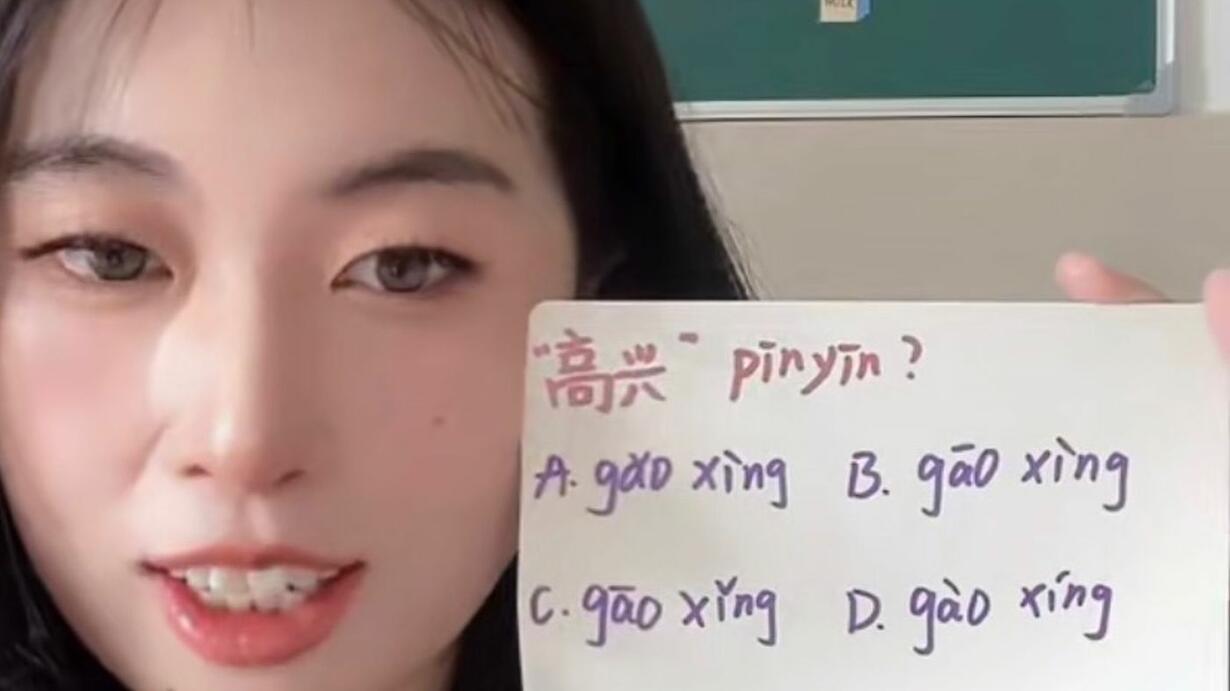 "高兴" pīnyīn?
A. gǎo xìng B. gāo xìng
C. gāo xǐng D. gào xíng